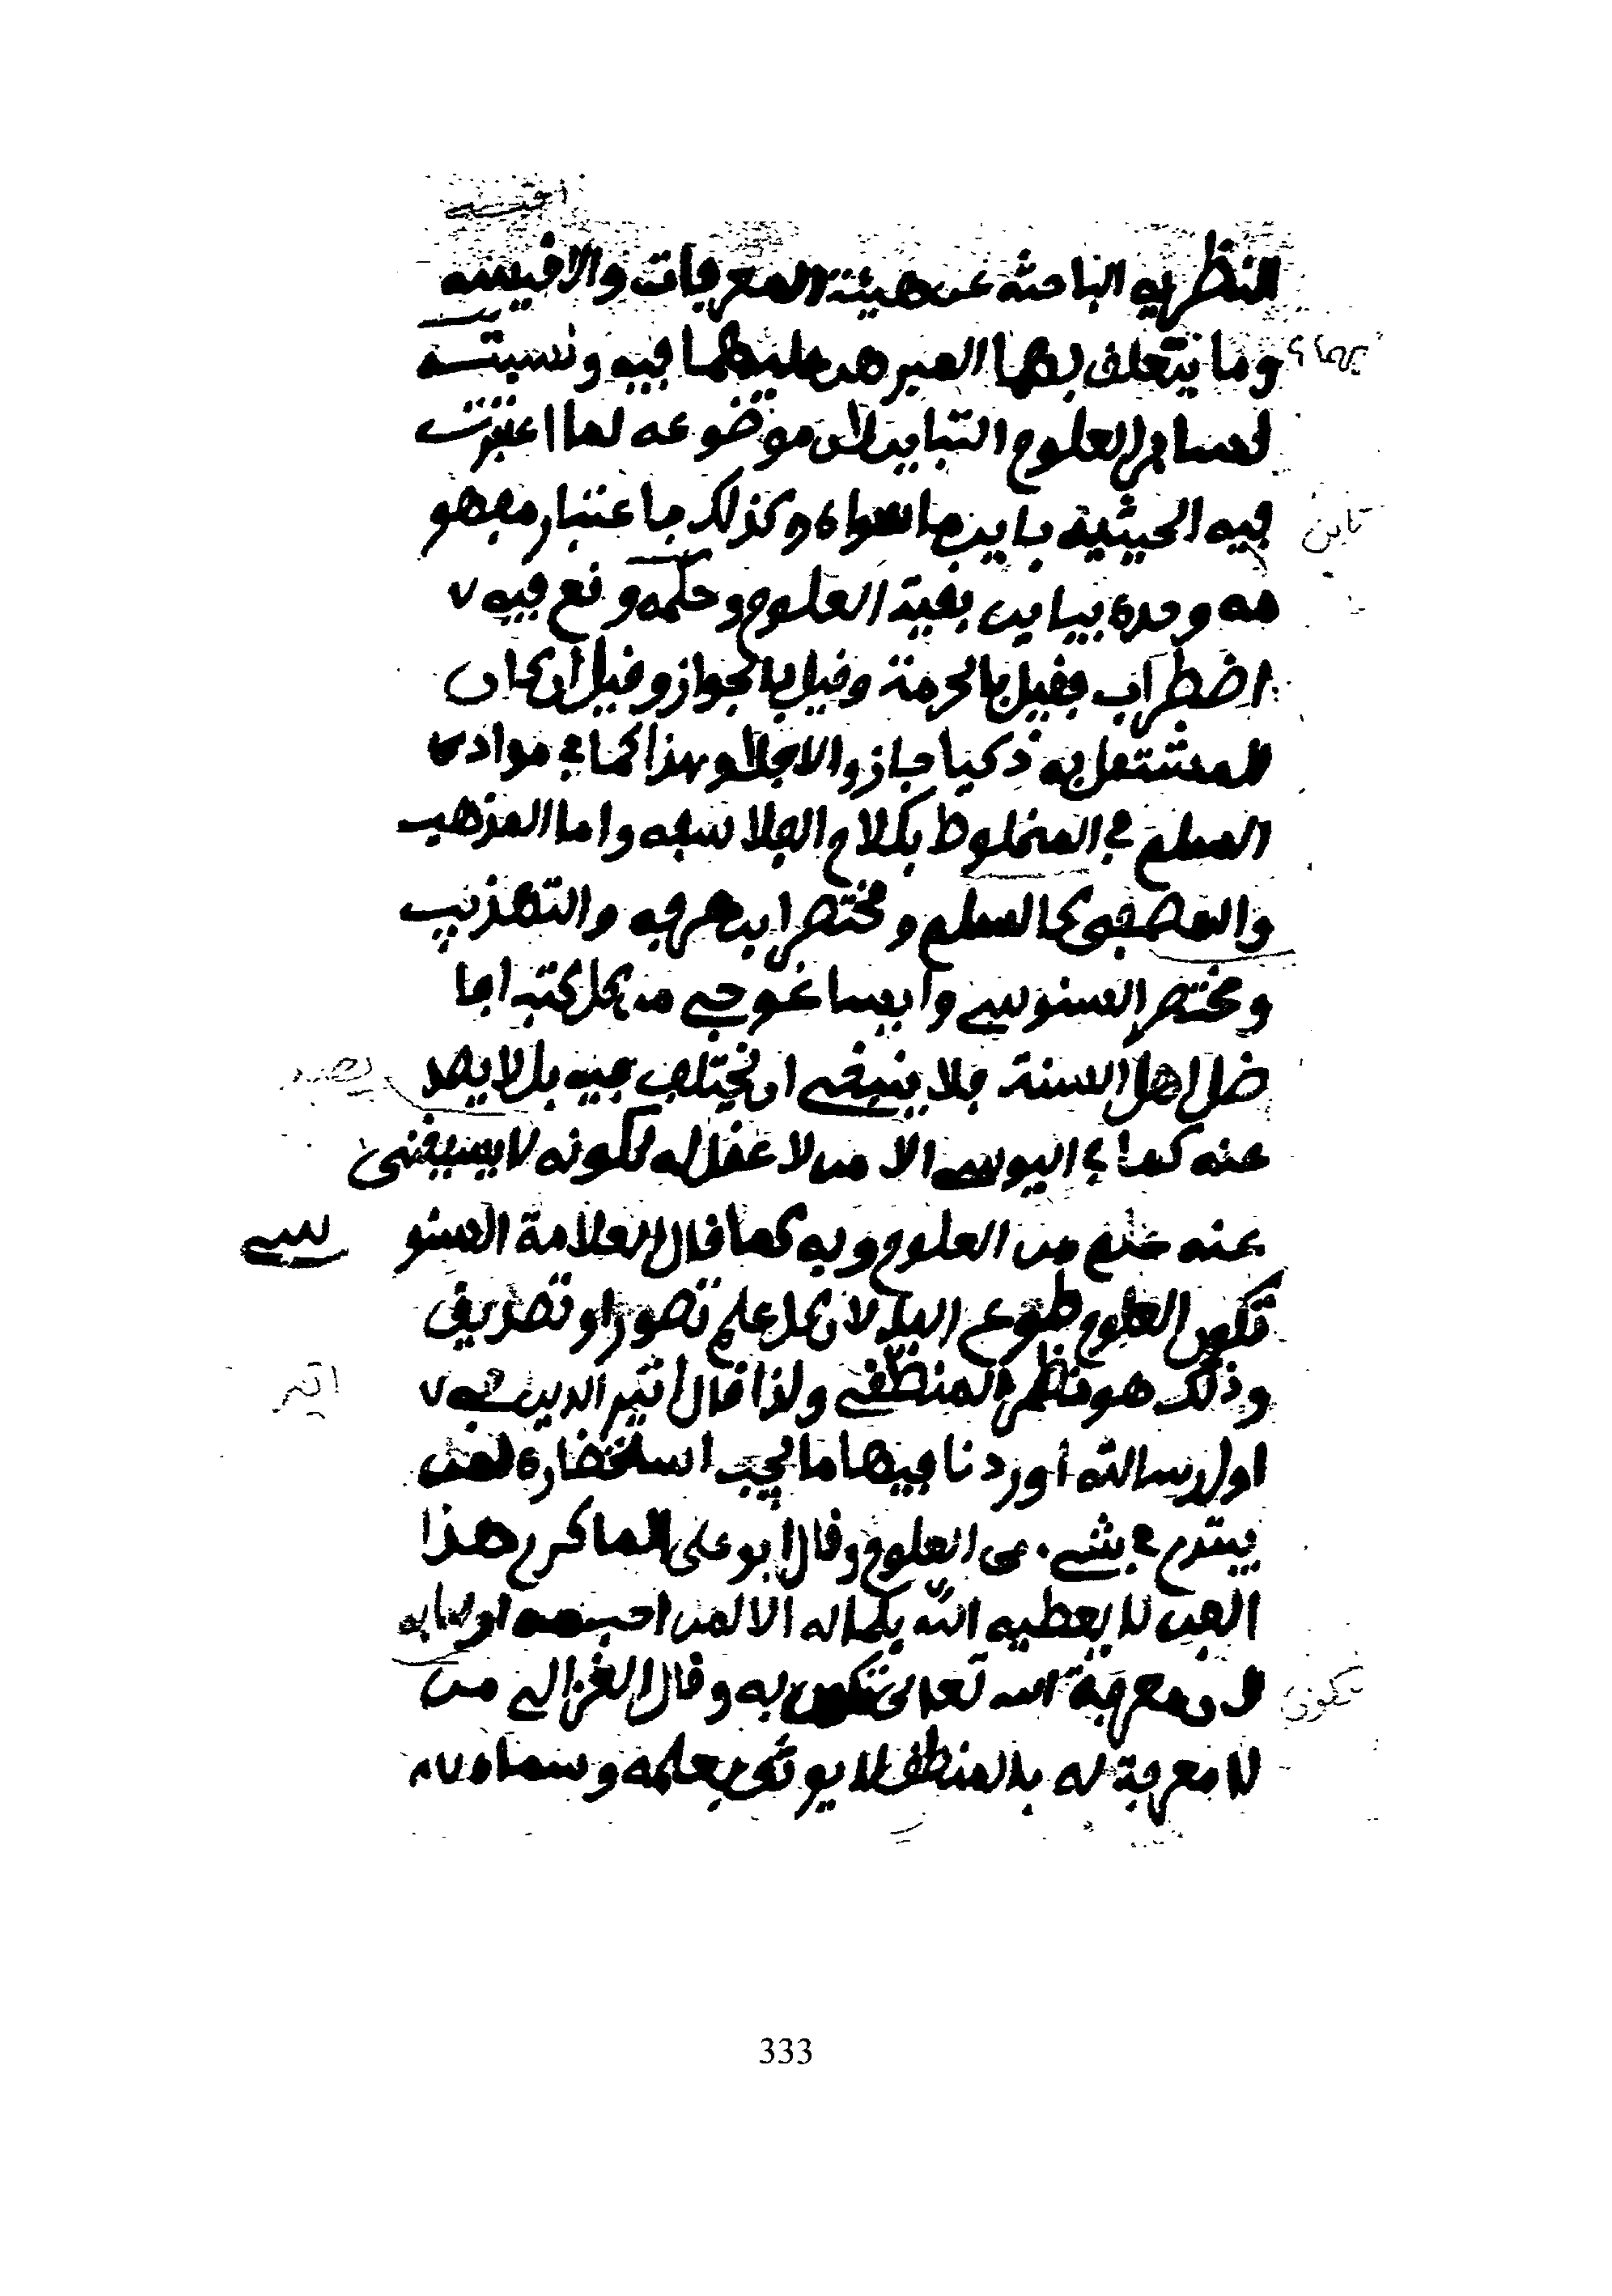 النظريه الباحثه عن هيئة المعرفات والاقيسه
وما يتعلق بهما المبرهن عليهما فيه ونسبته
لسائر العلوم التباين لان موضوعه لما اعتبرت
فيه الحيثية باين ما سواه وكذلك باعتبار مفهو
مه وحده يباين بقية العلوم وحكمه وقع فيه
اضطراب فقيل بالحرمة وقيل بالجواز وقيل ان كان
المشتغل به ذكيا جاز والا فلا وهذا كما في
السلم في المخلوط بكلام الفلاسفه واما المذهب
والمصفى كالسلم ومختصر ابن عرفه والتهذيب
ومختصر السنوسي وايساغوجي من كل كتب افا
ضل اهل السنة فلا ينبغي ان يختلف فيه بل لا يصد
عنه كما اليوسي الا من لا عقل له لكونه لا يستغنى
عنه علم من العلوم وبه كما قال العلامة السنو سي
تكون العلوم طوع اليد لان كل علم تصور او تصديق
وذلك هو نظر المنطقي ولذا قال اثير الدين في
اول رسالته اوردنا فيها ما يجب استحضاره لمن
يبتدئ في شيء من العلوم وقال ابو علي الماكري هذا
الفن لا يعطيه الله بكماله الا لمن احبه
لان معرفة الله تعالى تكون به وقال الغزالي من
لا معرفة له بالمنطق لا يوثق بعلمه وسماه
تباين
يصد
اثير
تكون
333